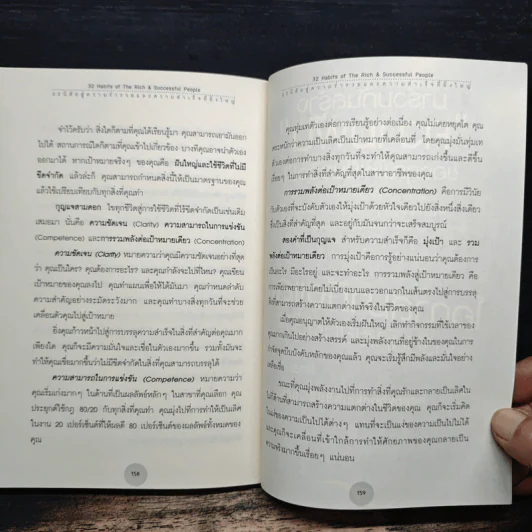 32 Habits of The Rich & Successful People
จำไว้ครับว่า สิ่งใดก็ตามที่คุณได้เรียนรู้มา คุณสามารถเอามันออก
ไปได้ สถานการณ์ใดก็ตามที่คุณเข้าไปเกี่ยวข้อง บางทีคุณอาจนำตัวเอง
ออกมาได้ หากเป้าหมายจริงๆ ของคุณคือ ฝันใหญ่และใช้ชีวิตที่ไม่มี
ขีดจำกัด แล้วล่ะก็ คุณสามารถกำหนดสิ่งนี้ให้เป็นมาตรฐานของคุณ
แล้วใช้เปรียบเทียบกับทุกสิ่งที่คุณทำ
กุญแจสามดอก ไขทุกชีวิตสู่การใช้ชีวิตที่ไร้ขีดจำกัดเป็นเช่นเดิม
เสมอมา นั่นคือ ความชัดเจน (Clarity) ความสามารถในการแข่งขัน
(Competence) และการรวมพลังต่อเป้าหมายเดียว (Concentration)
ความชัดเจน (Clarity) หมายความว่าคุณมีความชัดเจนอย่างที่สุด
ว่า คุณเป็นใคร? คุณต้องการอะไร? และคุณกำลังจะไปที่ไหน? คุณเขียน
เป้าหมายของคุณลงไป คุณทำแผนเพื่อให้ได้มันมา คุณกำหนดลำดับ
ความสำคัญอย่างระมัดระวังมาก และคุณทำบางสิ่งทุกวันที่จะช่วย
เคลื่อนตัวคุณไปสู่เป้าหมาย
ยิ่งคุณก้าวหน้าไปสู่การบรรลุความสำเร็จในสิ่งที่สำคัญต่อคุณมาก
เพียงใด คุณก็จะมีความมั่นใจและเชื่อในตัวเองมากขึ้น รวมทั้งมันจะ
ทำให้คุณเชื่อมากขึ้นว่าไม่มีขีดจำกัดในสิ่งที่คุณสามารถบรรลุได้
ความสามารถในการแข่งขัน (Competence) หมายความว่า
คุณเริ่มเก่งมากๆ ในด้านที่เป็นผลลัพธ์หลักๆ ในสาขาที่คุณเลือก คุณ
ประยุกต์ใช้กฎ 80/20 กับทุกสิ่งที่คุณทำ คุณมุ่งไปที่การทำให้เป็นเลิศ
ในงาน 20 เปอร์เซ็นต์ที่ให้ผลดี 80 เปอร์เซ็นต์ของผลลัพธ์ทั้งหมดของ
คุณ
158
32 Habits of The Rich & Successful People
คุณทุ่มเทตัวเองต่อการเรียนรู้อย่างต่อเนื่อง คุณไม่เคยหยุดโต คุณ
ตระหนักว่าความเป็นเลิศเป็นเป้าหมายที่เคลื่อนที่ โดยคุณมุ่งมั่นทุ่มเท
ตัวเองต่อการทำบางสิ่งทุกวันที่จะทำให้คุณสามารถเก่งขึ้นและดีขึ้น
เรื่อยๆ ในการทำสิ่งที่สำคัญที่สุดในสาขาอาชีพของคุณ
การรวมพลังต่อเป้าหมายเดียว (Concentration) คือการมีวินัย
กับตัวเองที่จะบังคับตัวเองให้มุ่งเป้าด้วยหัวใจเดียวไปยังสิ่งหนึ่งสิ่งเดียว
ซึ่งเป็นสิ่งที่สำคัญที่สุด และอยู่กับมันจนกว่าจะเสร็จสมบูรณ์
สองคำที่เป็นกุญแจ สำหรับความสำเร็จก็คือ มุ่งเป้า และ รวม
พลังต่อเป้าหมายเดียว การมุ่งเป้าคือการรู้อย่างแน่นอนว่าคุณต้องการ
เป็นอะไร มีอะไรอยู่ และจะทำอะไร การรวมพลังสู่เป้าหมายเดียว คือ
การเพียรพยายามโดยไม่เบี่ยงเบนและวอกแวกในเส้นตรงไปสู่การบรรลุ
สิ่งที่สามารถสร้างความแตกต่างแท้จริงในชีวิตของคุณ
เมื่อคุณอนุญาตให้ตัวเองเริ่มฝันใหญ่ เลิกทำกิจกรรมที่ใช้เวลาของ
คุณมากเกินไปอย่างสร้างสรรค์ และมุ่งพลังงานที่อยู่ข้างในของคุณในการ
กำจัดจุดบีบบังคับหลักของคุณแล้ว คุณจะเริ่มรู้สึกมีพลังและมั่นใจอย่าง
เหลือเชื่อ
ขณะที่คุณมุ่งพลังงานไปที่การทำสิ่งที่คุณรักและกลายเป็นเลิศใน
ไม่กี่ด้านที่สามารถสร้างความแตกต่างในชีวิตของคุณ คุณก็จะเริ่มคิด
ในแง่ของความเป็นไปได้ต่างๆ แทนที่จะเป็นแง่ของความเป็นไปไม่ได้
และคุณก็จะเคลื่อนที่เข้าใกล้การทำให้ศักยภาพของคุณกลายเป็น
ความจริงมากขึ้นเรื่อยๆ แน่นอน
159